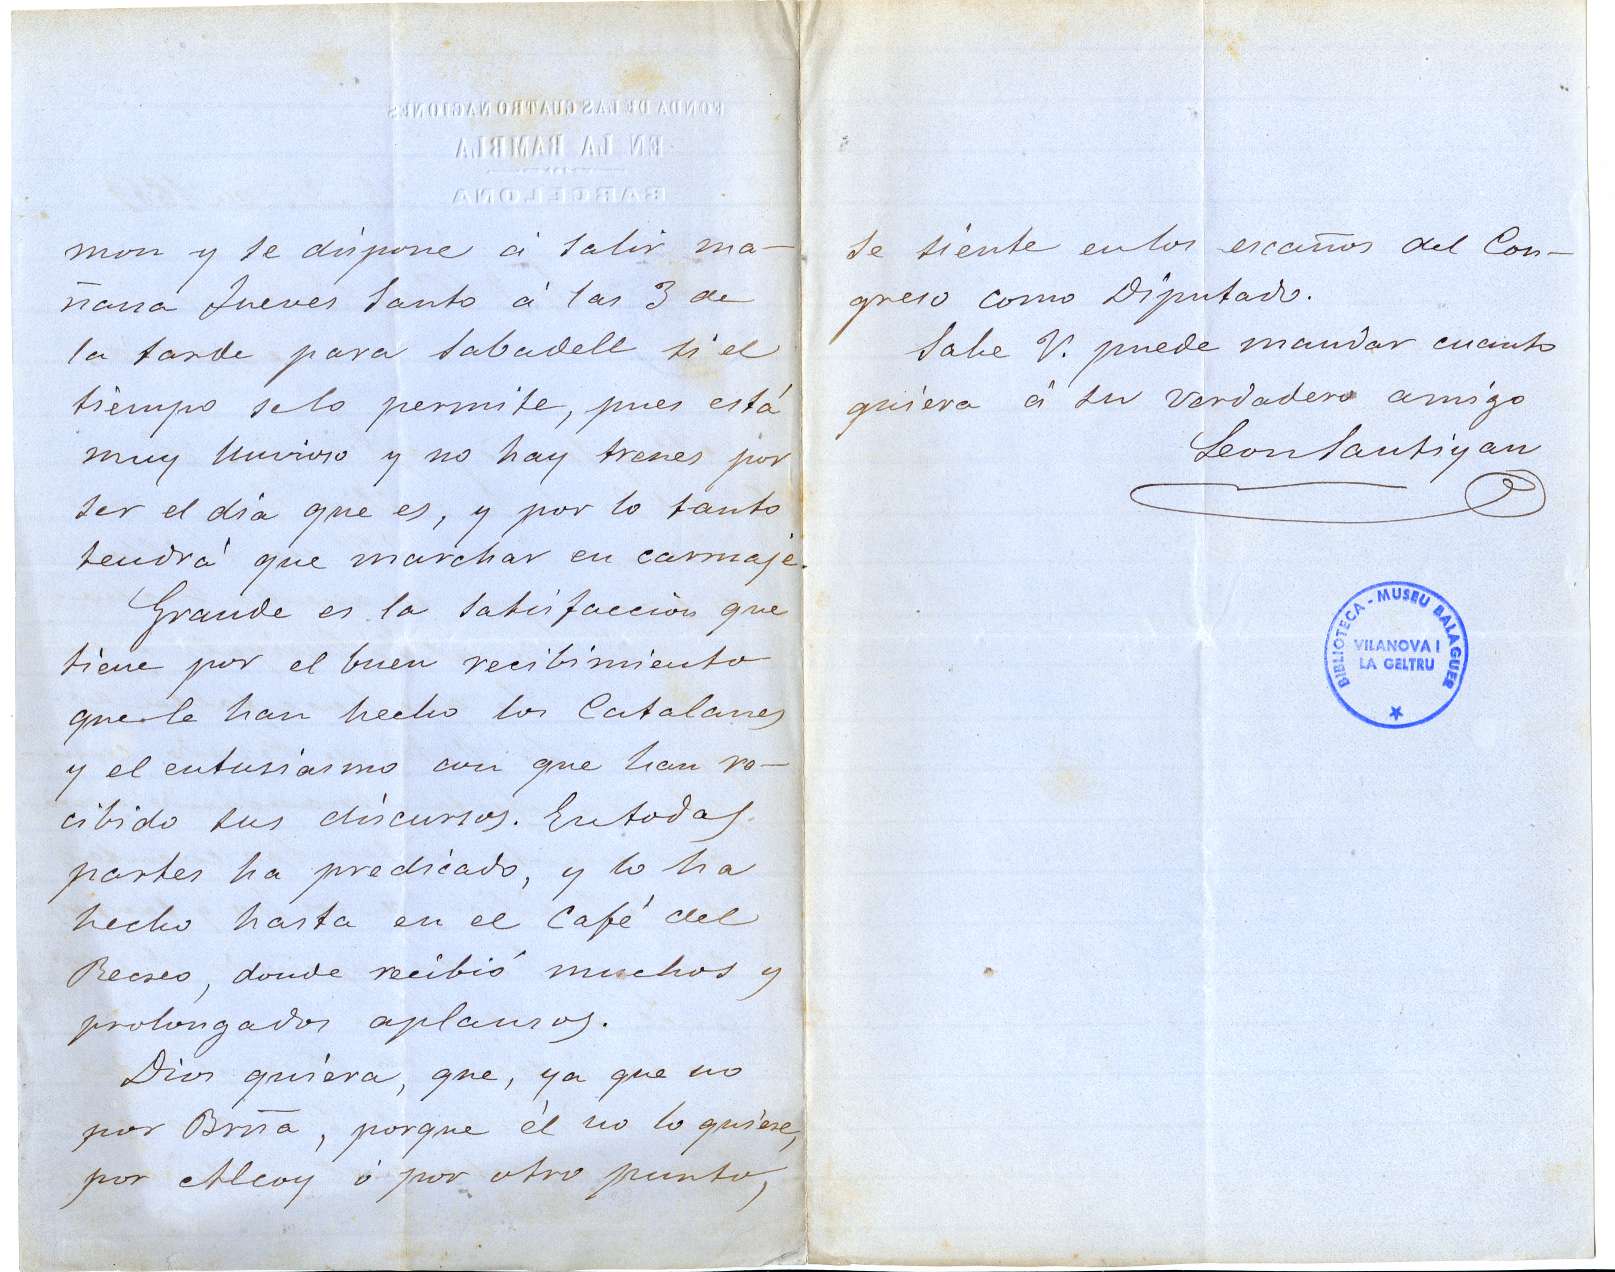 FONDA DE LAS CUATRO NACIONES
EN LA RAMBLA
BARCELONA
mon y se dispone á salir ma-
ñana Jueves Santo á las 3 de
la tarde para Sabadell si el
tiempo selo permite, pues está
muy lluvioso y no hay trenes por
ser el dia que es, y por lo tanto
tendrá que marchar en carruaje.
Grande es la satisfaccion que
tiene por el buen recibimiento
que le han hecho los Catalanes
y el entusiasmo con que han re-
cibido sus discursos. En todas
partes ha predicado, y lo ha
hecho hasta en el Café del
Recreo, donde recibió muchos y
prolongados aplausos.
Dios quiera, que, ya que no
por Brña, porque él no lo quiere,
por Alcoy ó por otro punto,
se siente en los escaños del Con-
greso como Diputado.
Sabe V. puede mandar cuanto
quiera á su verdadero amigo
Leon Santigan
BIBLIOTECA - MUSEU BALAGUER
VILANOVA I
LA GELTRU